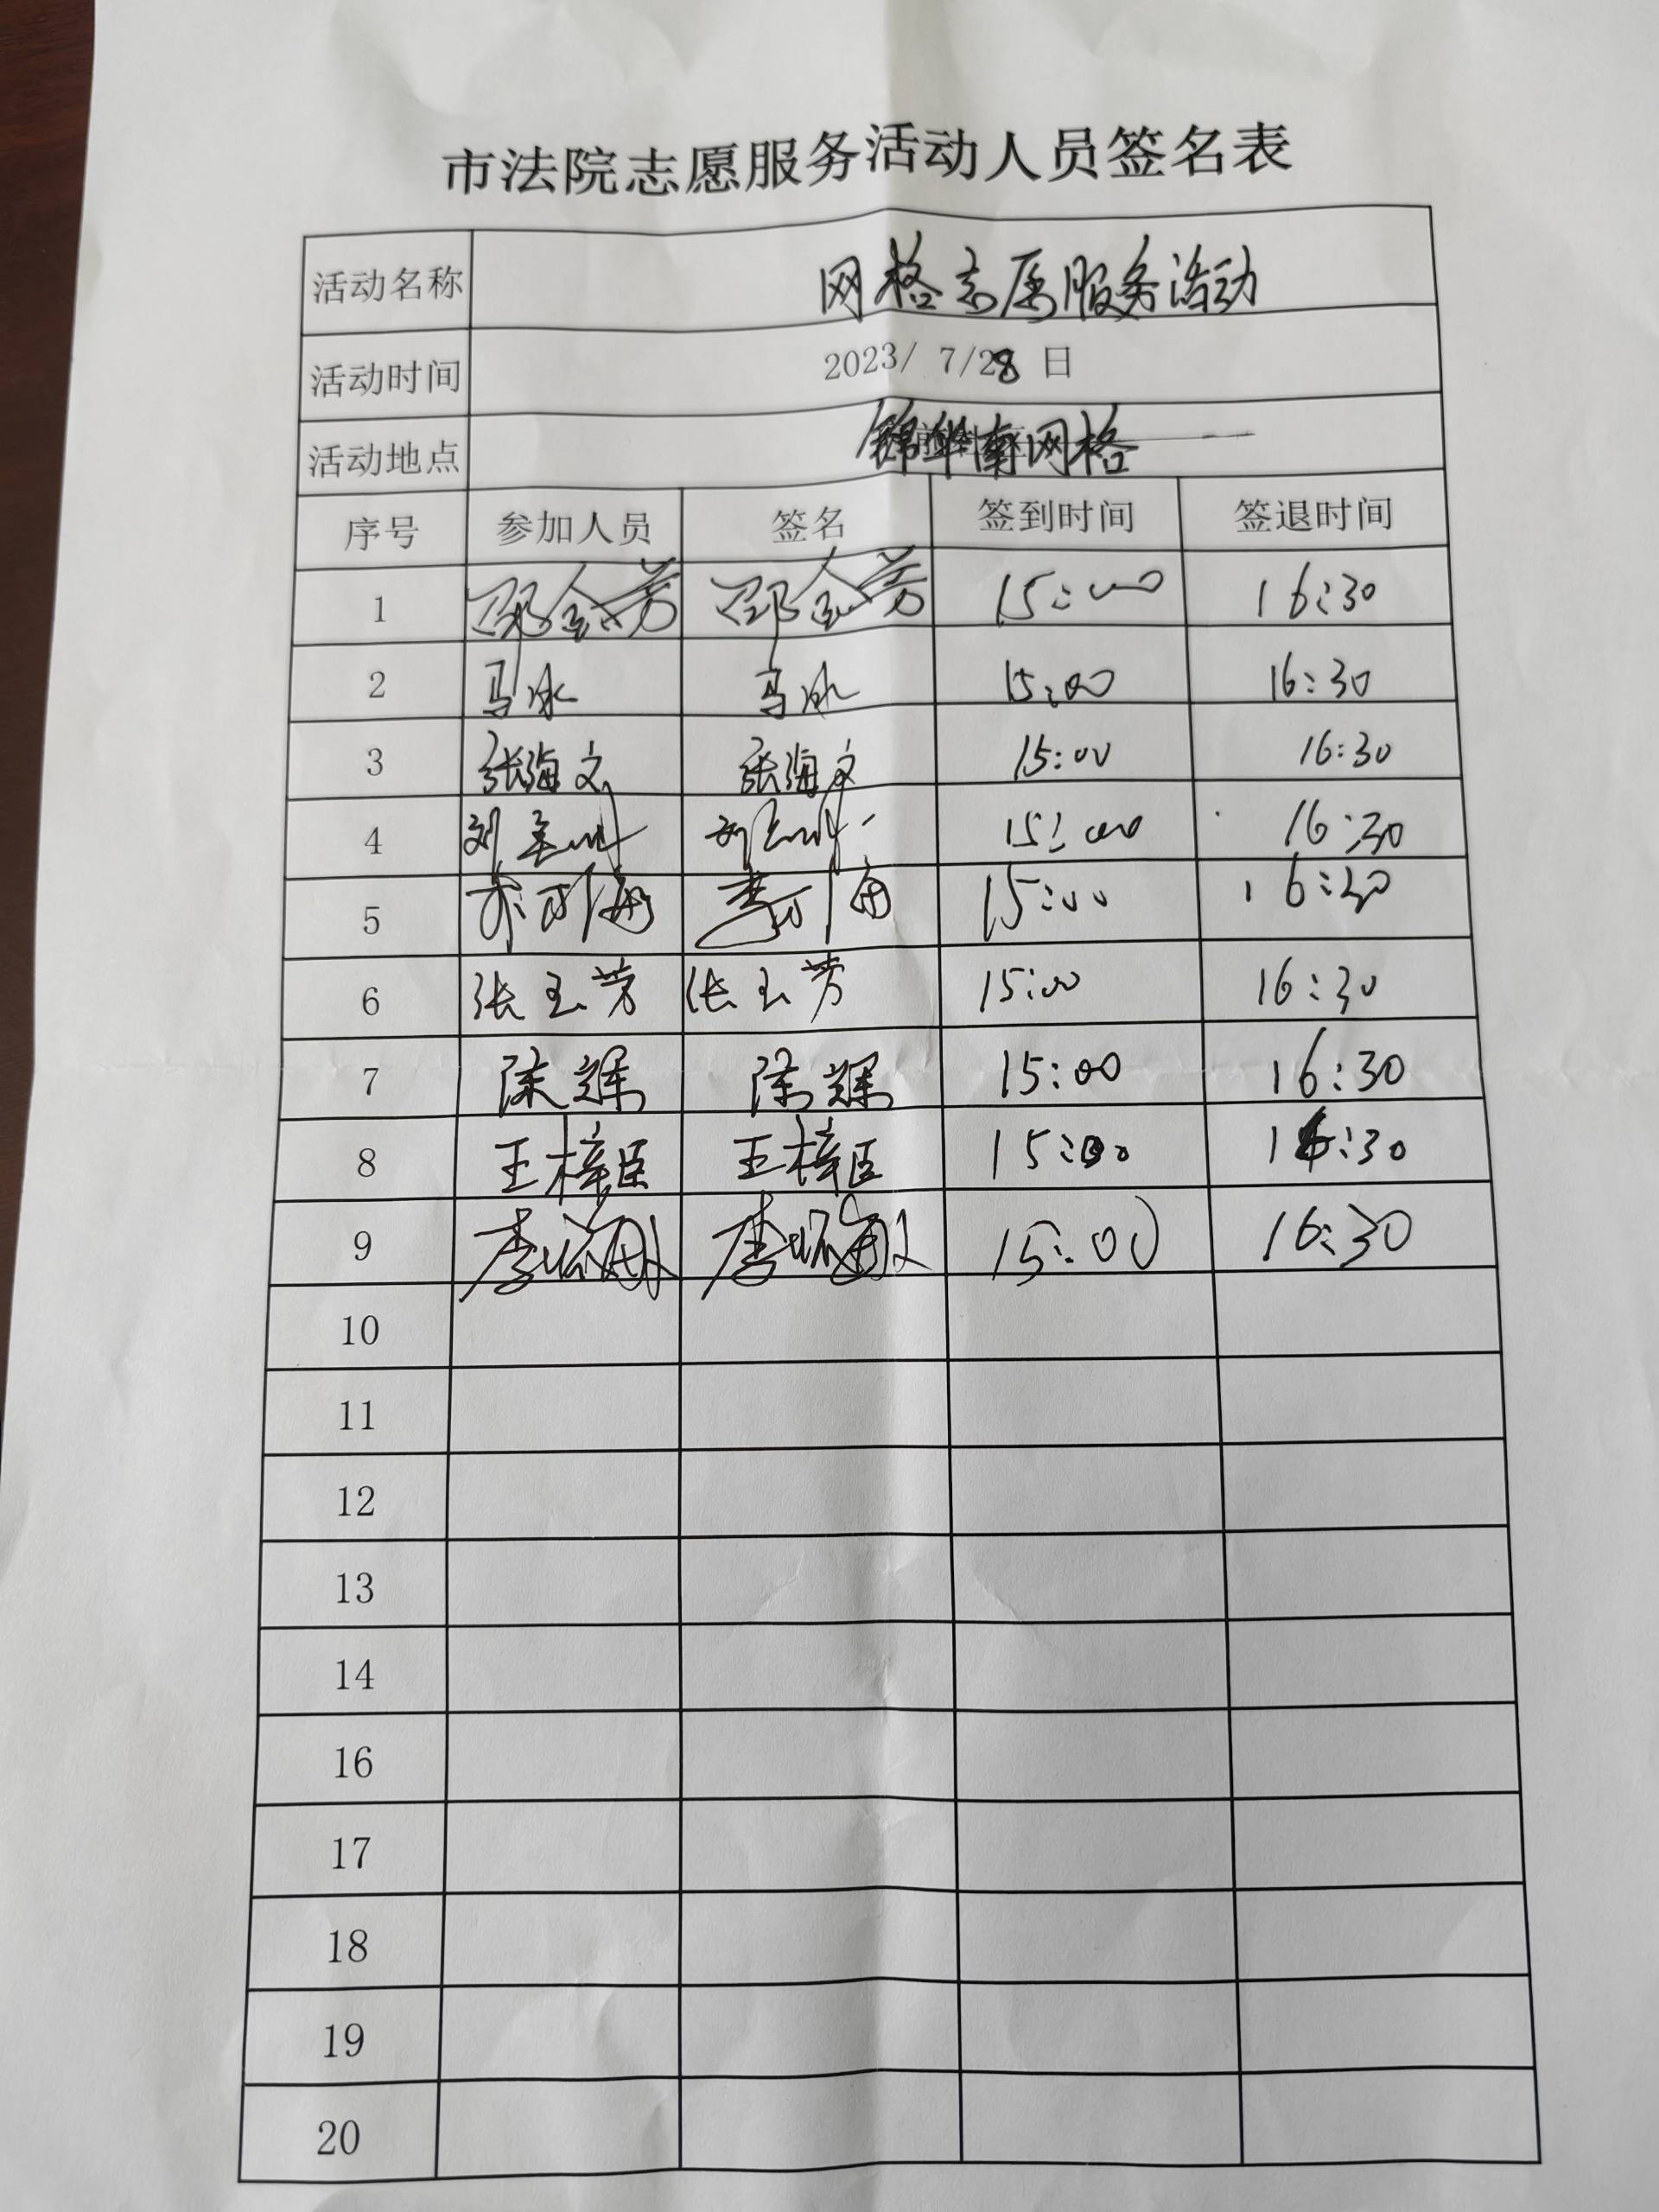 市法院志愿服务活动人员签名表
活动名称 网格志愿服务活动
活动时间 2023/ 7/28 日
活动地点 锦华南网格
序号 参加人员 签名 签到时间 签退时间
1 邵金芳 邵金芳 15:00 16:30
2 马冰 马冰 15:00 16:30
3 张海文 张海文 15:00 16:30
4 刘 刘 15:00 16:30
5 15:00 16:30
6 张玉芳 张玉芳 15:00 16:30
7 陈辉 陈辉 15:00 16:30
8 王梓臣 王梓臣 15:00 16:30
9 李 李 15:00 16:30
10
11
12
13
14
16
17
18
19
20